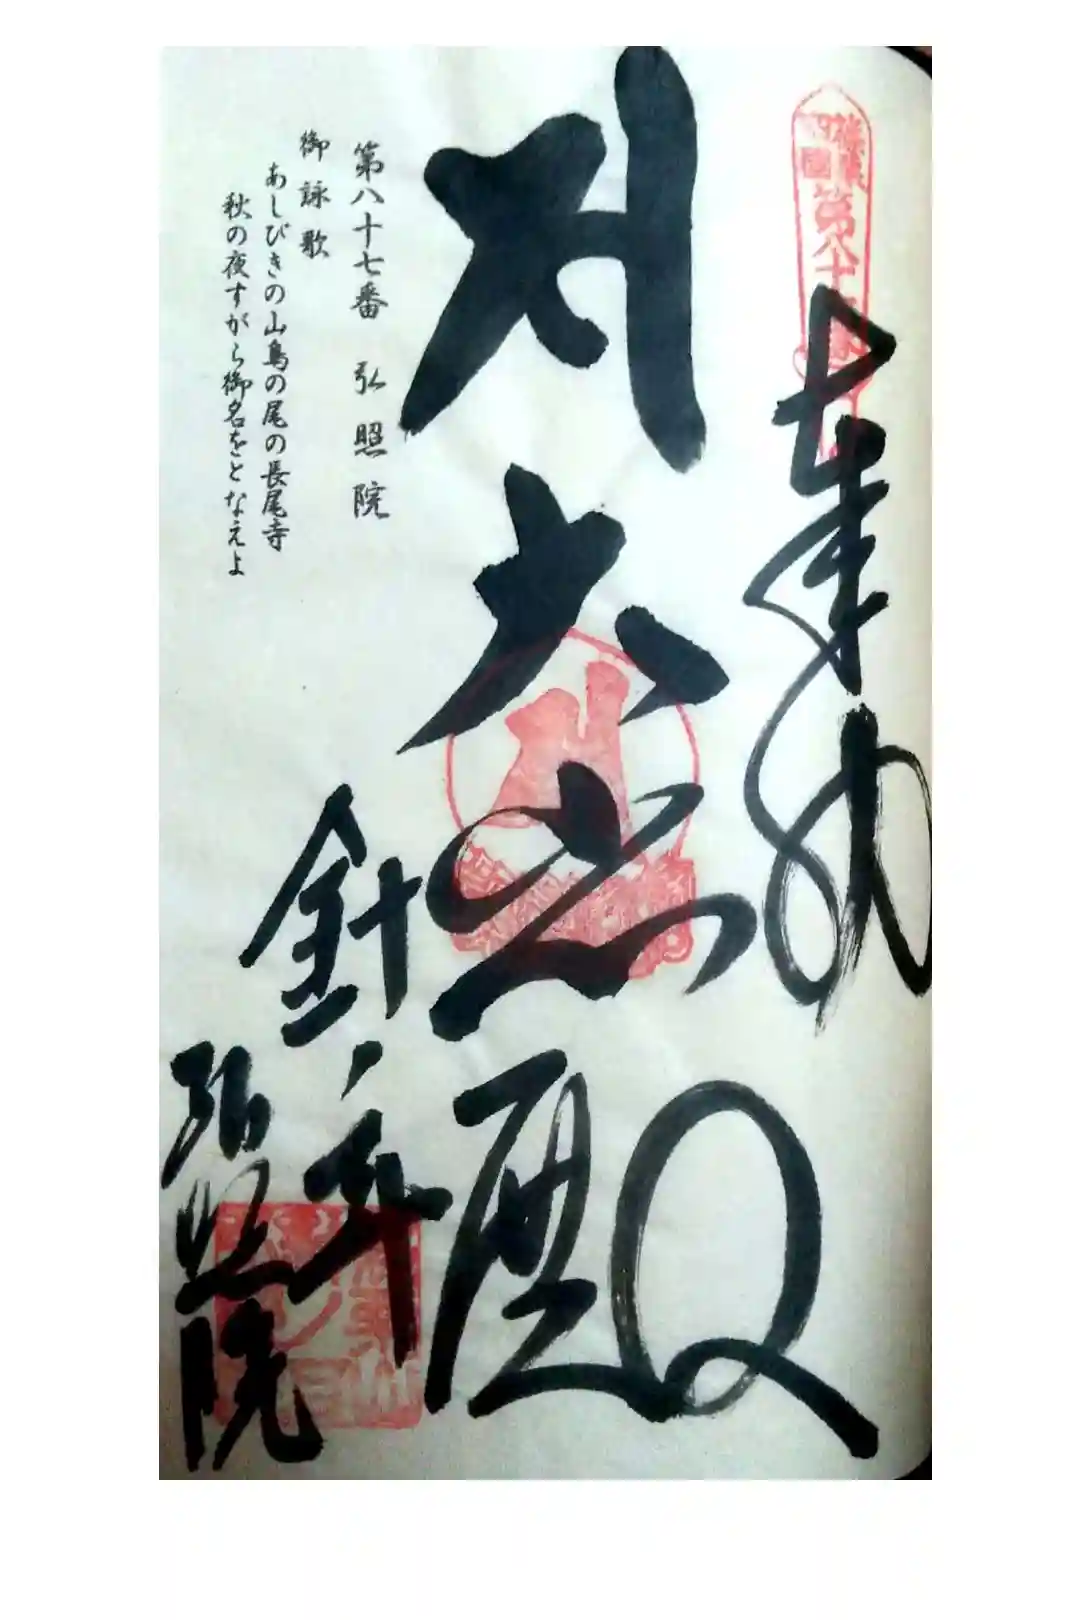 篠栗
四国
第八十
奉納
大悲殿
第八十七番 弘照院
御詠歌
あしびきの山鳥の尾の長尾寺
秋の夜すがら御名をとなえよ
針ノ耳
弘照院